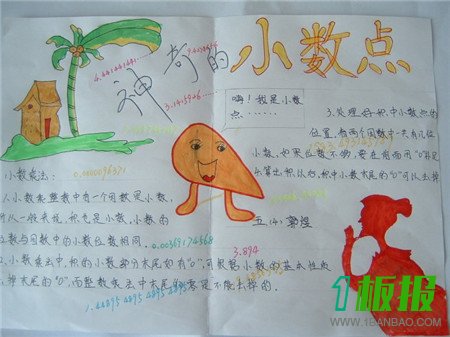 神奇的小数点
4.44144144
3.1415926…
嗨！我是小数
点……
3.处理好积中小数点的
位置，看两个因数中一共有几位
小数，如果位数不够，要在前面用"0"补足
小数乘法：
0.0000096371
1.小数乘整数中有一个因数是小数，
所以一般来说，积也是小数，小数的
位数与因数中的小数位数相同。
0.00369174568
2.小数乘法中，积的小数部分末尾如有"0"，可根据小数的基本性质
掉末尾的"0"，而整数乘法中末尾的"0"是不能去掉的．
3.894
五．(4)
1.44895 4895 4895
1板报
WWW.1BANBAO.COM